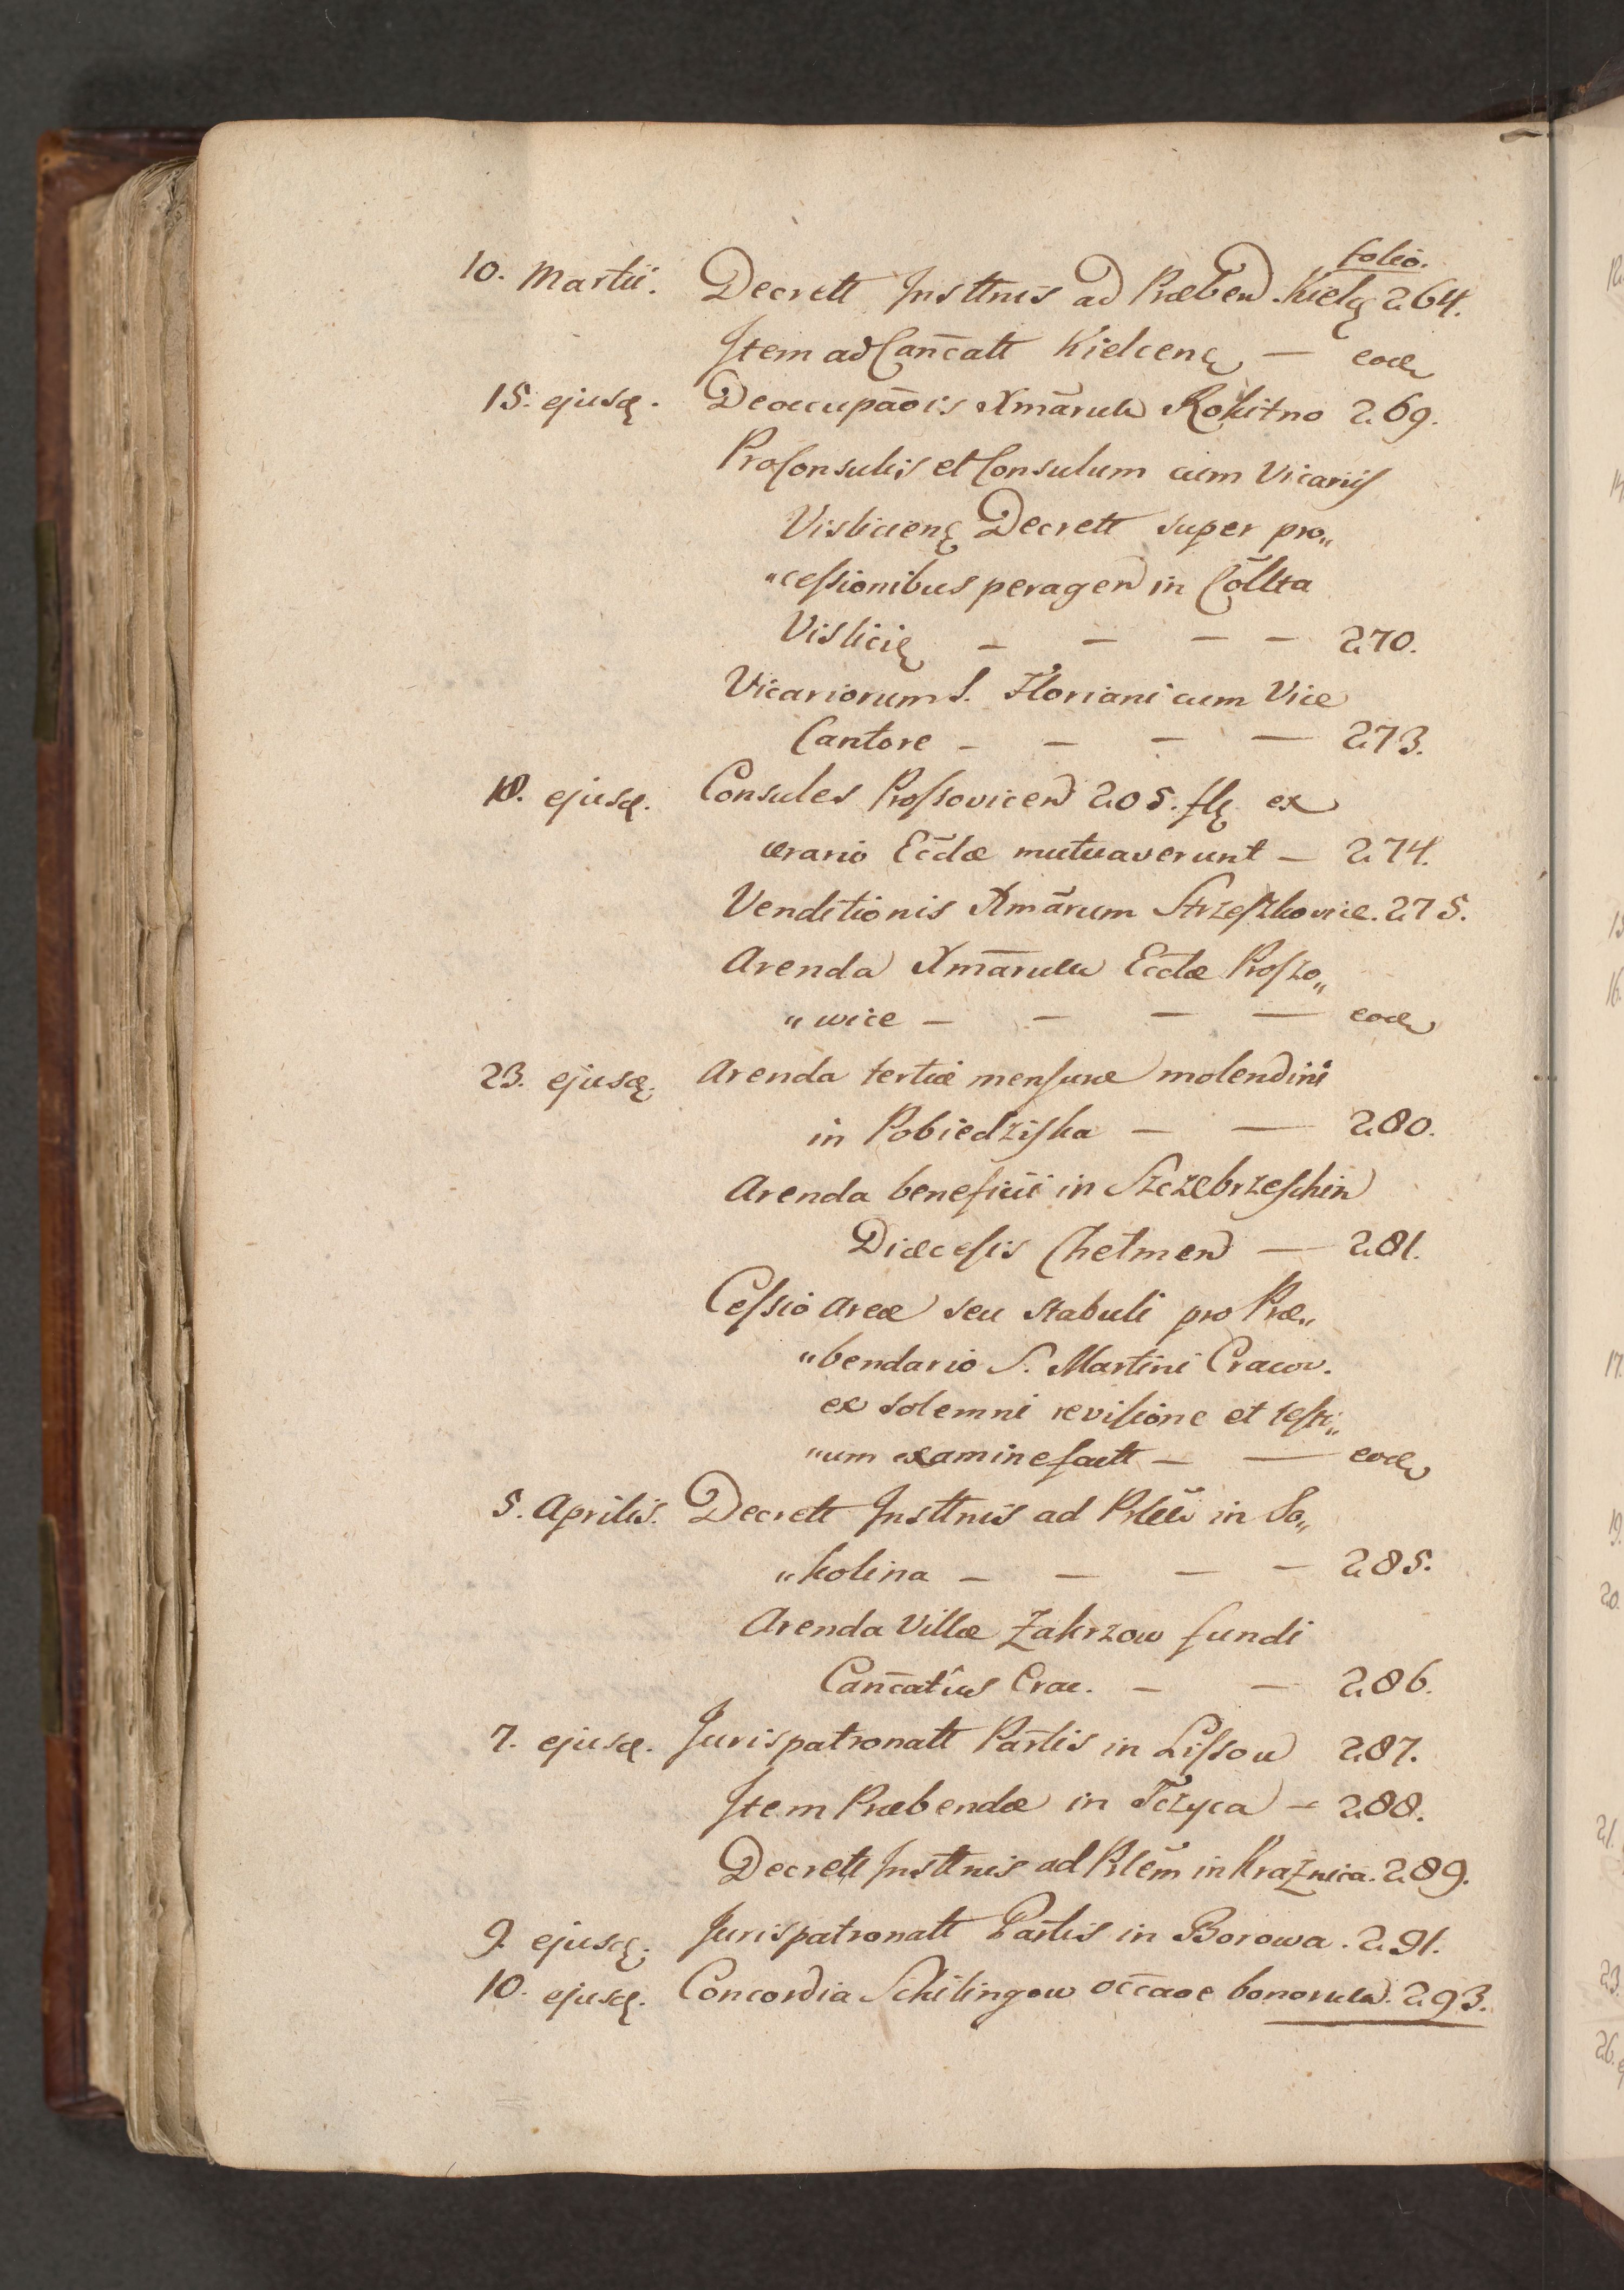 folio.
10. Martii. Decrett Insttnis ad Præben Kielę 264.
Item ad Canc̄att Kielcenę — eode
15. ejusdę. Deoccupaōis Xmārum Rokitno 269.
Proconsulis et Consulum cum Vicariis
Vislicienę Decrett super pro„
„cessionibus peragen in Cōllta
Vislicię — — — — 270.
Vicariorum S. Floriani cum Vice
Cantore — — — — 273.
18. ejusdę. Consules Prossovicen 205. flę ex
ærario Ecc̄læ mutuaverunt — 274.
Venditionis Xmārum Strzeszkovice. 275.
Arenda Xmārum Ecc̄læ Proszo„
„wice — — — — eode
23. ejusdę. Arenda tertiæ mensuræ molendini
in Pobiedziska — — 280.
Arenda beneficii in Szczebrzeschin
Diæcesis Chelmen — 281.
Cessio areæ seu stabuli pro Præ„
„bendario S. Martini Cracov.
ex solemni revisione et testi„
„um examine factt — — eode
5. Aprilis. Decrett Insttnis ad Plēm in So„
„kolina — — — — 285.
Arenda Villæ Zakrzow fundi
Canc̄atûs Crac. — — 286.
7. ejusdę. Jurispatronatt Partis in Lissow 287.
Item Præbendæ in Tczyca — 288.
Decrett Insttnis ad Plēm in Kraznica. 289.
9. ejusdę. Jurispatronatt Partis in Borowa. 291.
10. ejusdę. Concordia Schilingow occ̄aōe bonorum. 293.